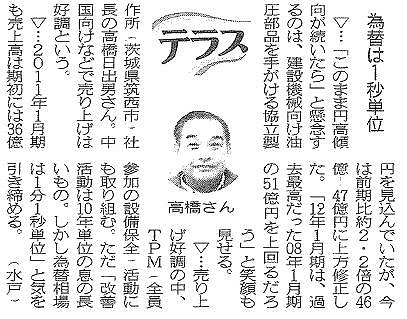 為替は1秒単位
テラス
▽…「このまま円高傾
向が続いたら」と懸念す
るのは、建設機械向け油
圧部品を手がける協立製
作所(茨城県筑西市)社
長の高橋日出男さん。中
国向けなどで売り上げは
好調という。
▽…2011年1月期
も売上高は期初には36億
円を見込んでいたが、今
は前期比約2・2倍の46
億~47億円に上方修正し
た。「12年1月期は、過
去最高だった08年1月期
の51億円を上回るだろ
う」と笑顔も
見せる。
▽…売り上
げ好調の中、
TPM(全員
参加の設備保全)活動に
も取り組む。ただ「改善
活動は10年単位の息の長
いもの。しかし為替相場
は1分1秒単位」と気を
引き締める。(水戸)
高橋さん